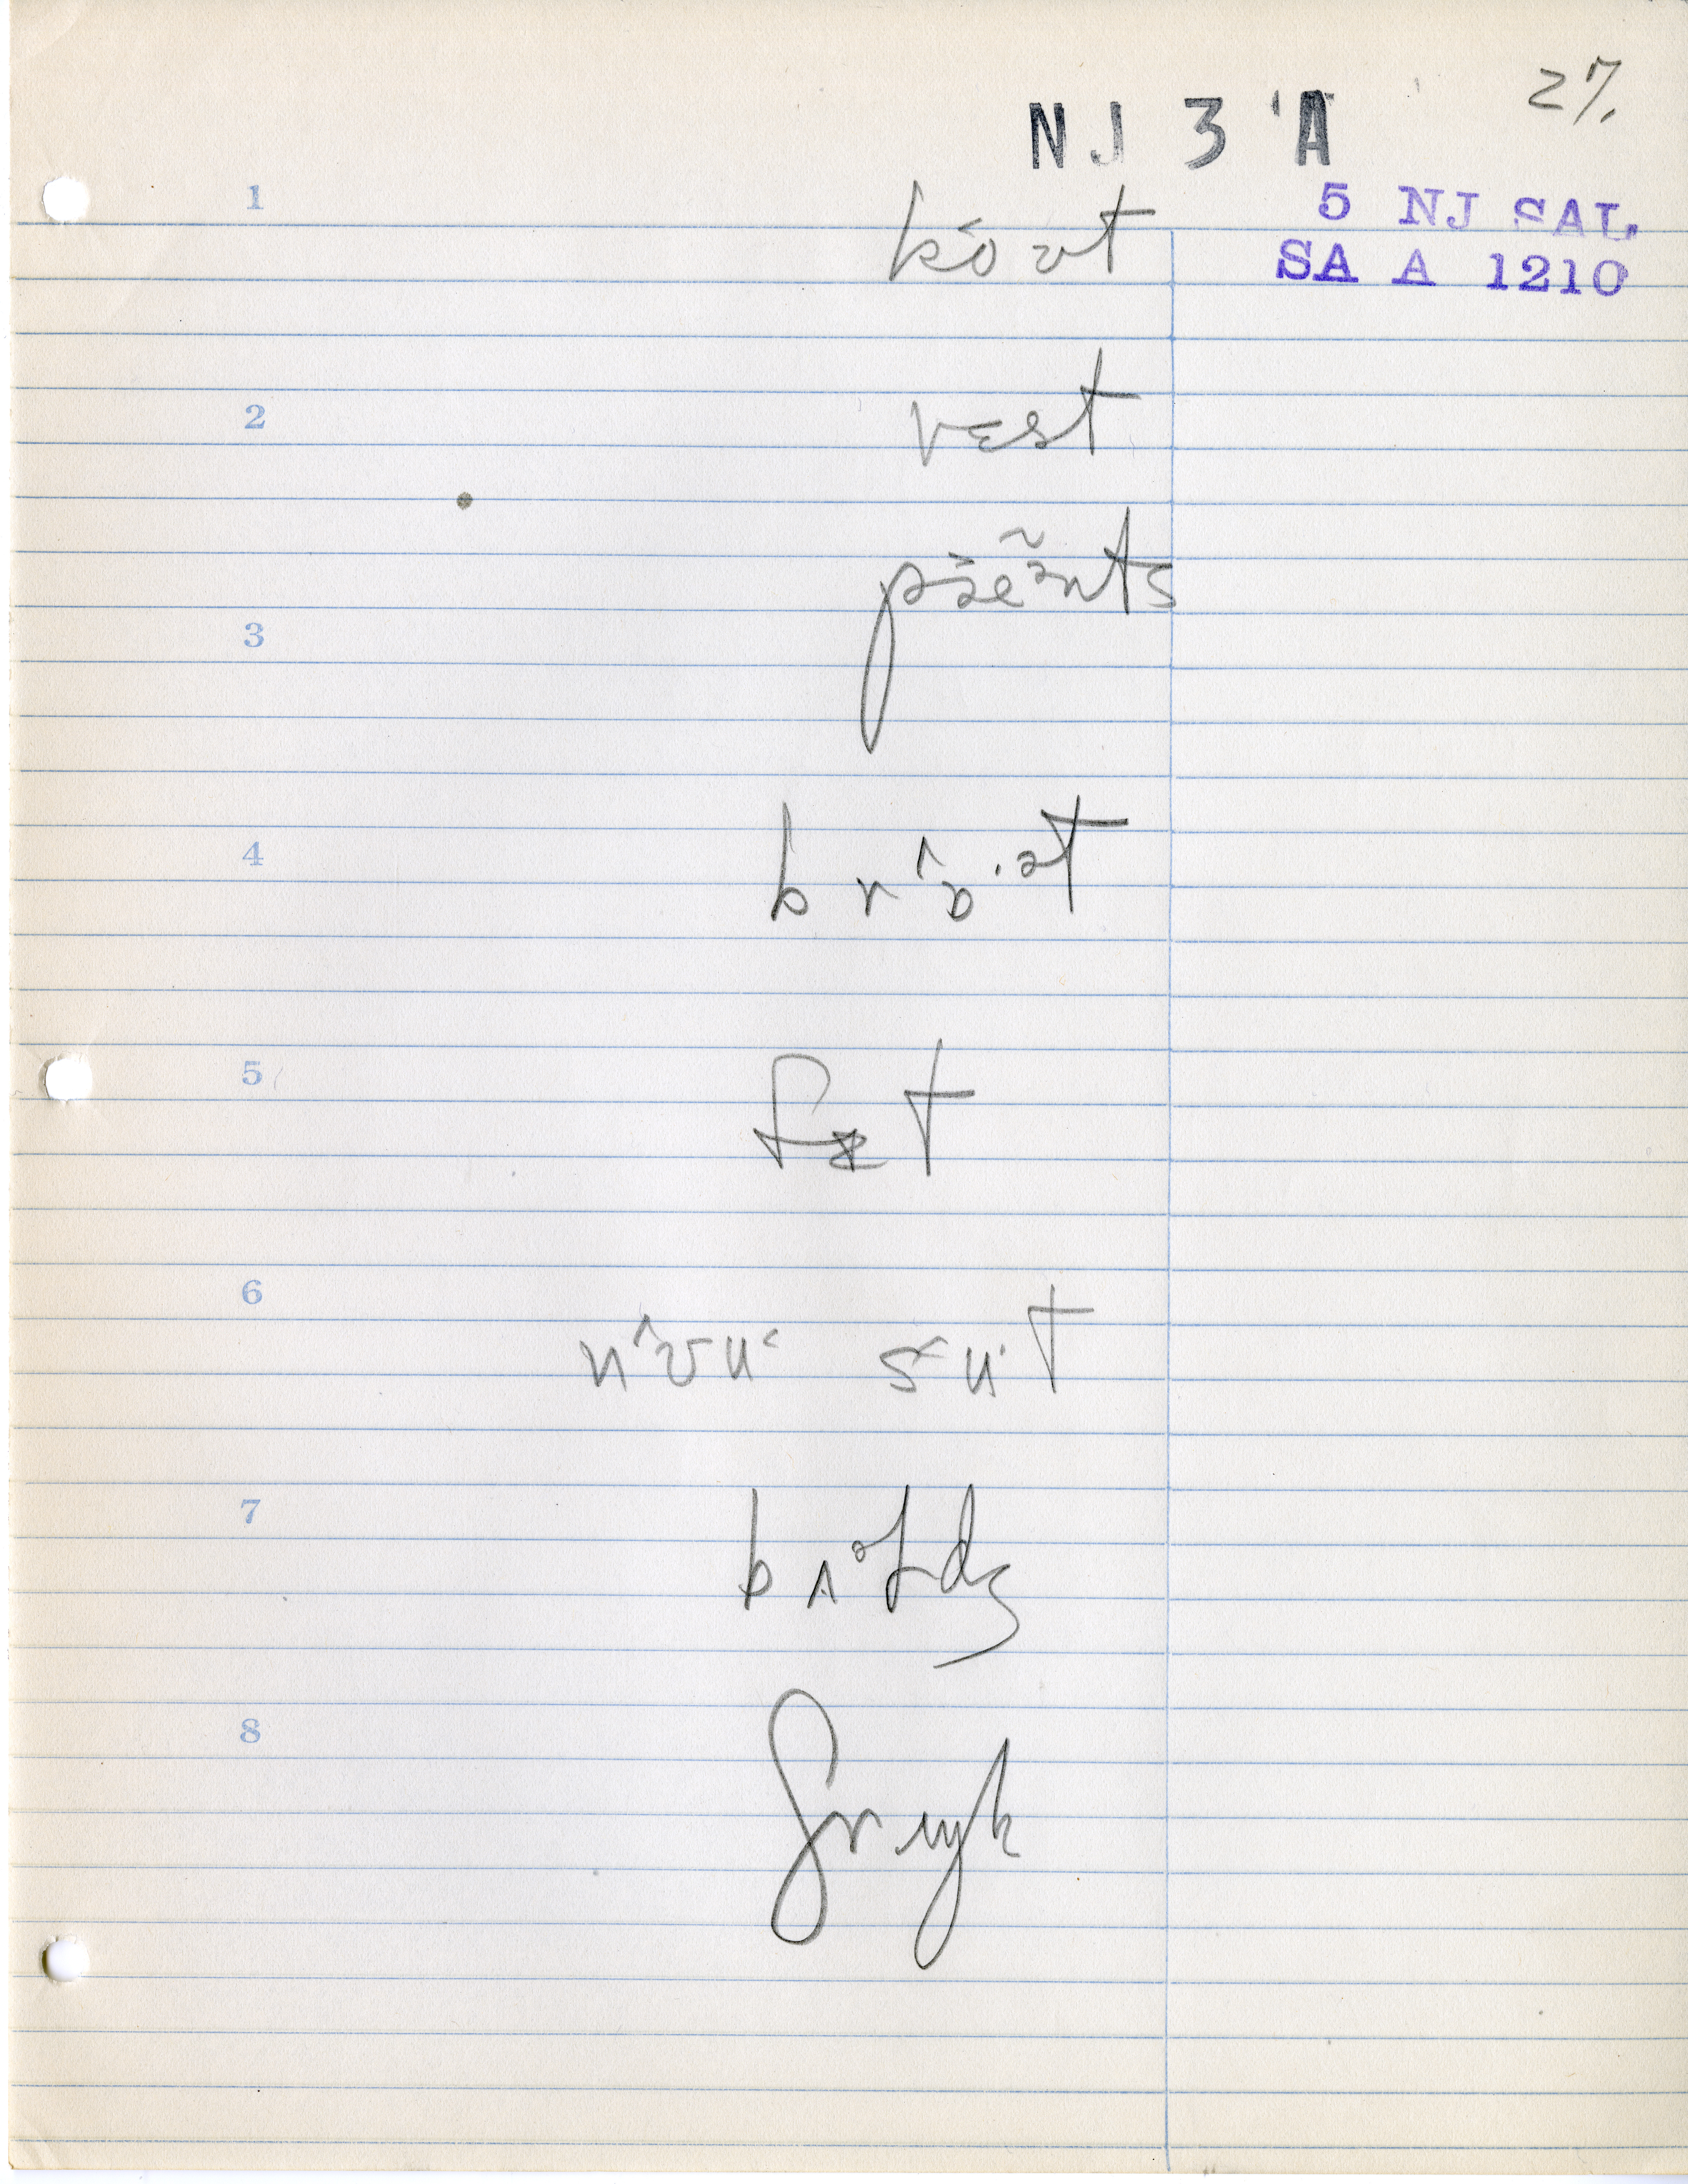 27.
NJ 3 A
5 NJ SAL
SA A 1210
1 ko˂ʊt
2 vɛst
3 pæ˃ẽə̃nts
4 brɒ^·ət
5 fɪt
6 nʊ^u˂ sʉ·t
7 bʌ°ɫdʒ
8 ʃrɪŋk